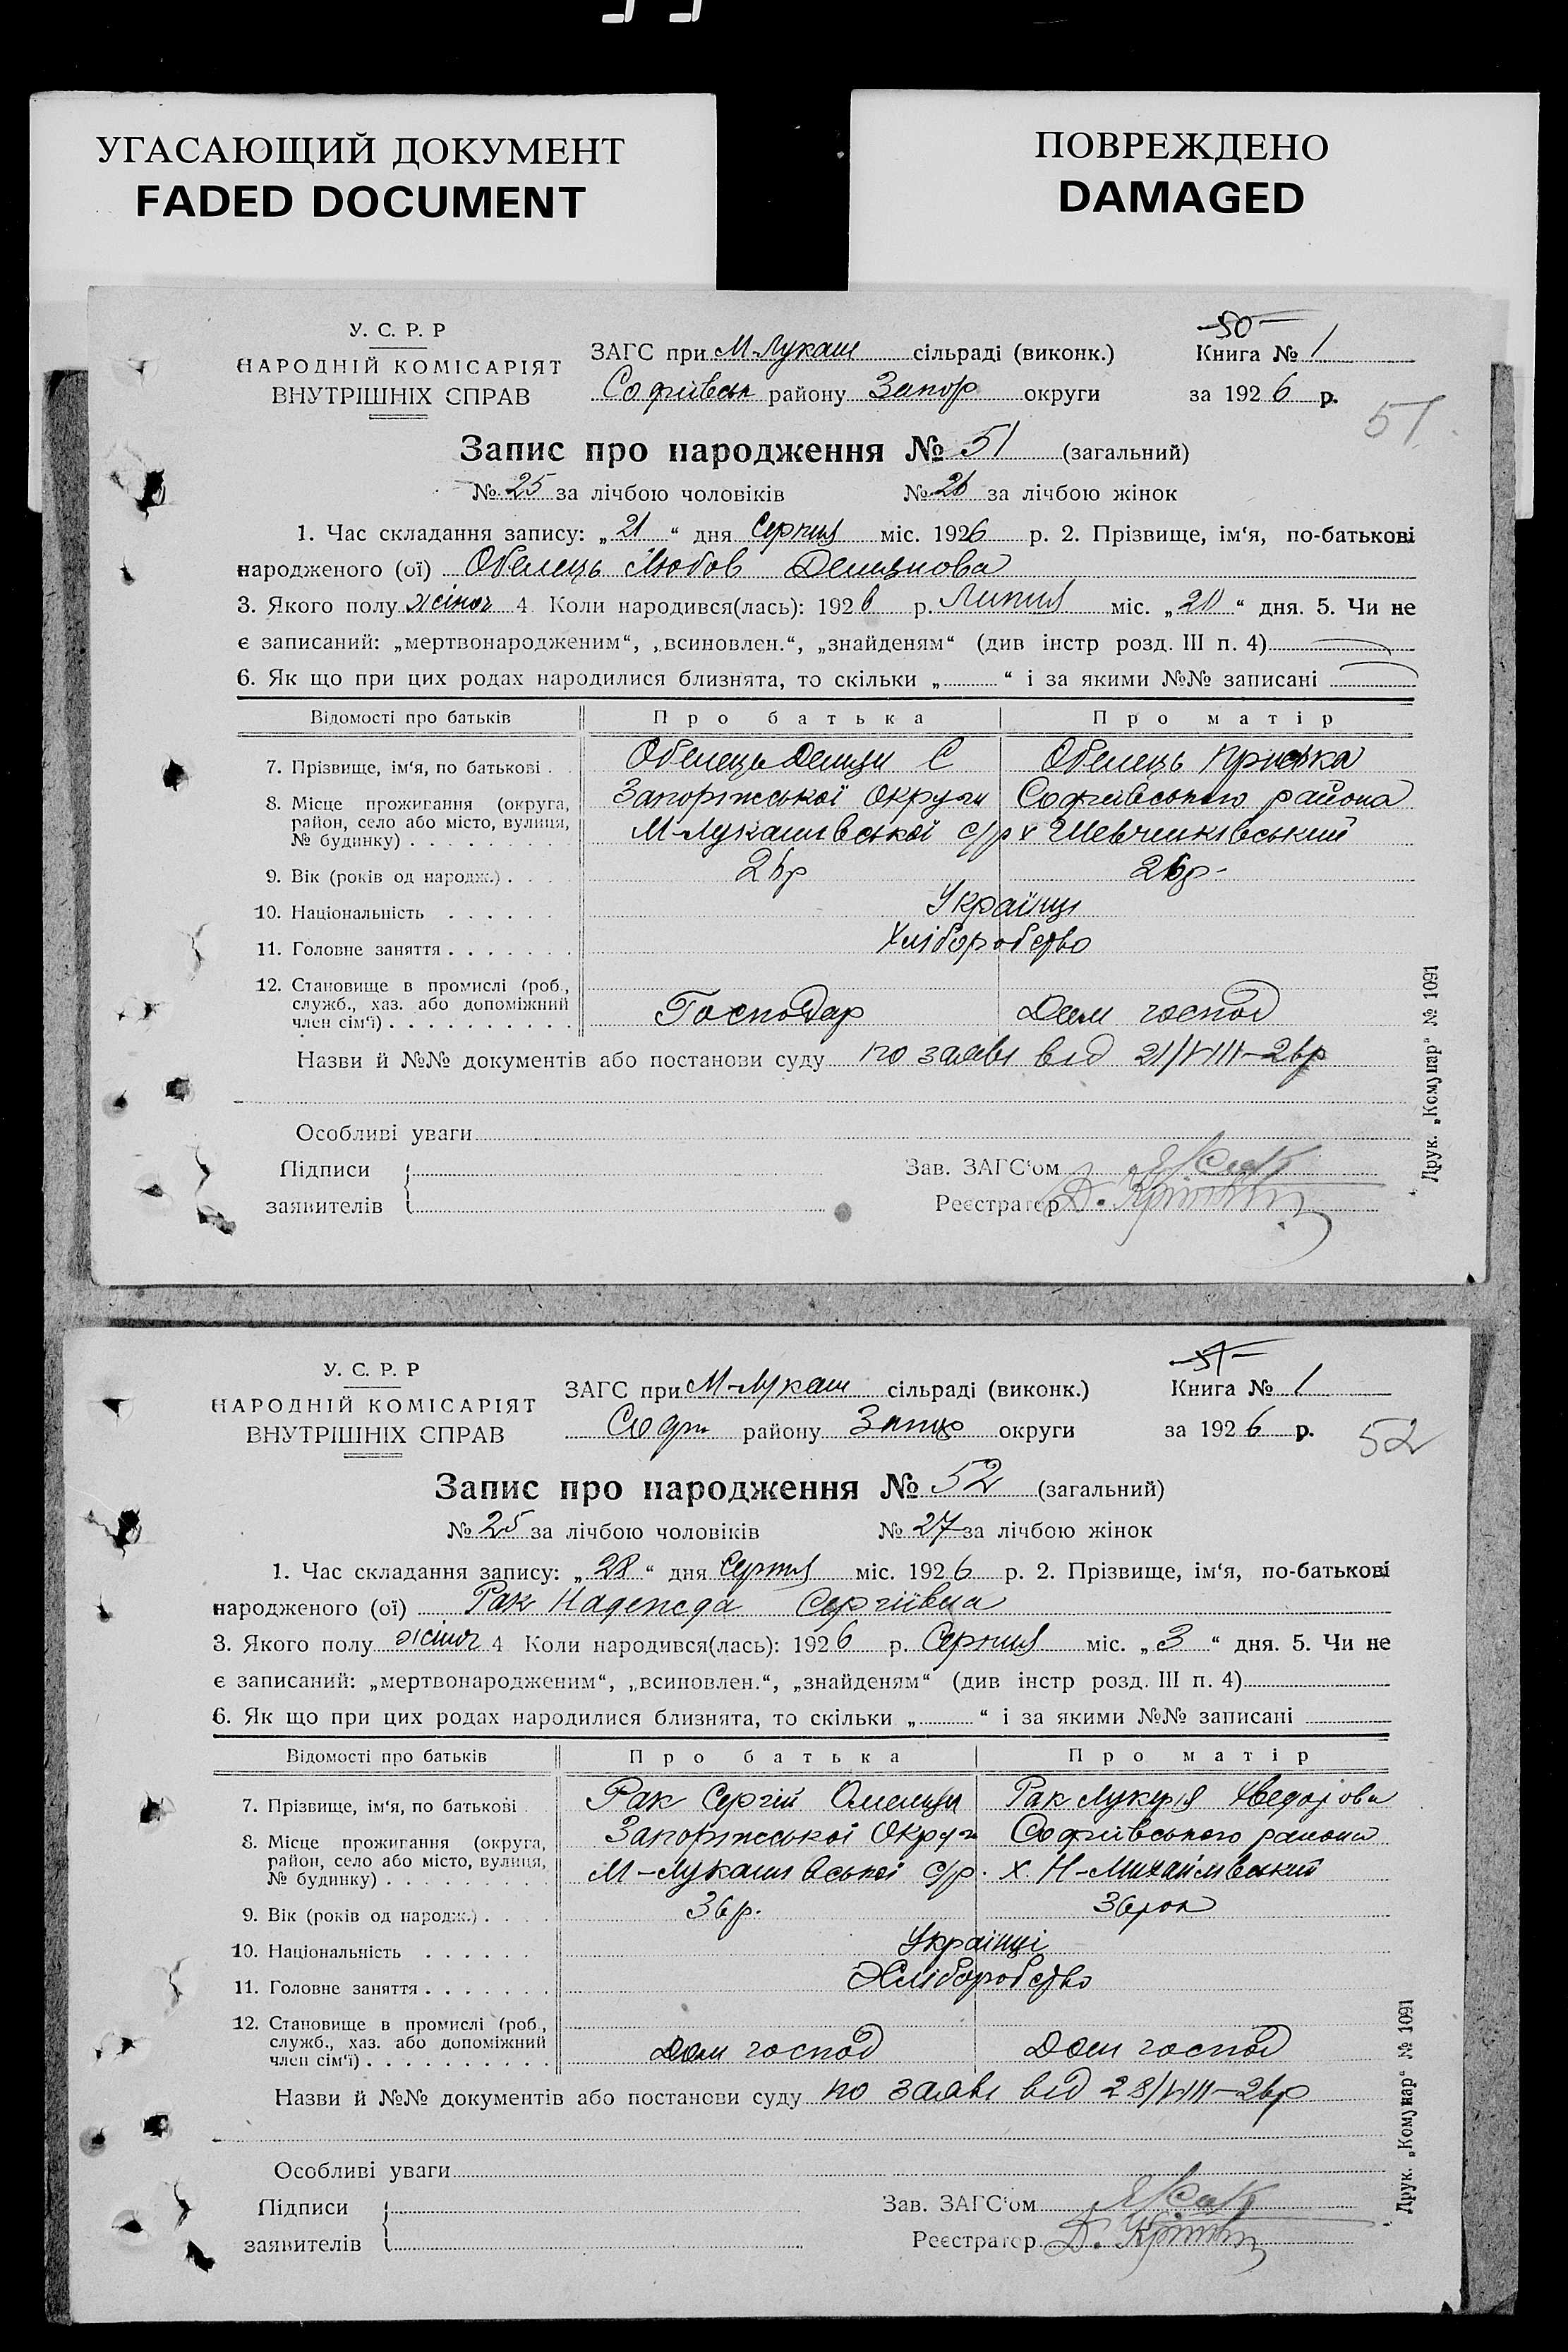 УГАСАЮЩИЙ ДОКУМЕНТ
FADED DOCUMENT
ПОВРЕЖДЕНО
DAMAGED
У. С. Р. Р
НАРОДНІЙ КОМІСАРІЯТ
ВНУТРІШНІХ СПРАВ
ЗАГС при М-Лукаш сільраді (виконк.)
Софіївськ району Запор округи
50
Книга № 1
за 1926 р.
51
Запис про народження № 51 (загальний)
№ 25 за лічбою чоловіків № 26 за лічбою жінок
1. Час складання запису: „21“ дня Серпня міс. 1926 р. 2. Прізвище, ім‘я, по-батькові
народженого (ої) Обелець Любов
3. Якого полу жіноч 4 Коли народився(лась): 1926 р. Липня міс. „20“ дня. 5. Чи не
є записаний: „мертвонародженим“, „всиновлен.“, „знайденям“ (див інстр розд. III п. 4)
6. Як що при цих родах народилися близнята, то скільки „ “ і за якими №№ записані
Відомості про батьків Про батька Про матір
7. Прізвище, ім‘я, по батькові Обелець С ОбелецьПриська
8. Місце прожигання (округа, район, село або місто, вулиця, № будинку) Запоріжської Округи Софиівського района
М-Лукашивської с/р х Шевченківський
9. Вік (років од народж.) 26р 26р-
10. Національність Українці
11. Головне заняття Хліборобство
12. Становище в промислі (роб., служб., хаз. або допоміжний член сім‘ї) Господар Дом господ
Назви й №№ документів або постанови суду по заяві від 21/VIII-26р
Особливі уваги
Підписи
заявителів
Зав. ЗАГС‘ом
Реєстратор
Друк. „Комунар“ № 1091
У. С. Р. Р
НАРОДНІЙ КОМІСАРІЯТ
ВНУТРІШНІХ СПРАВ
ЗАГС при М-Лукаш сільраді (виконк.)
Софи району Запор округи
51
Книга № 1
за 1926 р.
52
Запис про народження № 52 (загальний)
№ 25 за лічбою чоловіків № 27 за лічбою жінок
1. Час складання запису: „28“ дня Серпня міс. 1926 р. 2. Прізвище, ім‘я, по-батькові
народженого (ої) Рак Надежда Сергіївна
3. Якого полу жіноч 4 Коли народився(лась): 1926 р. Серпня міс. „3“ дня. 5. Чи не
є записаний: „мертвонародженим“, „всиновлен.“, „знайденям“ (див інстр розд. III п. 4)
6. Як що при цих родах народилися близнята, то скільки „ “ і за якими №№ записані
Відомості про батьків Про батька Про матір
7. Прізвище, ім‘я, по батькові Рак Сергій Рак Лукерія
8. Місце прожигання (округа, район, село або місто, вулиця, № будинку) Запоріжської Округи Софиівського района
М-Лукашивської с/р. х. Н-Михайлівський
9. Вік (років од народж.) 36р. 36рок
10. Національність Українці
11. Головне заняття Хліборобство
12. Становище в промислі (роб., служб., хаз. або допоміжний член сім‘ї) Дом господ Дом господ
Назви й №№ документів або постанови суду по заяві від 28/VIII-26р
Особливі уваги
Підписи
заявителів
Зав. ЗАГС‘ом
Реєстратор
Друк. „Комунар“ № 1091